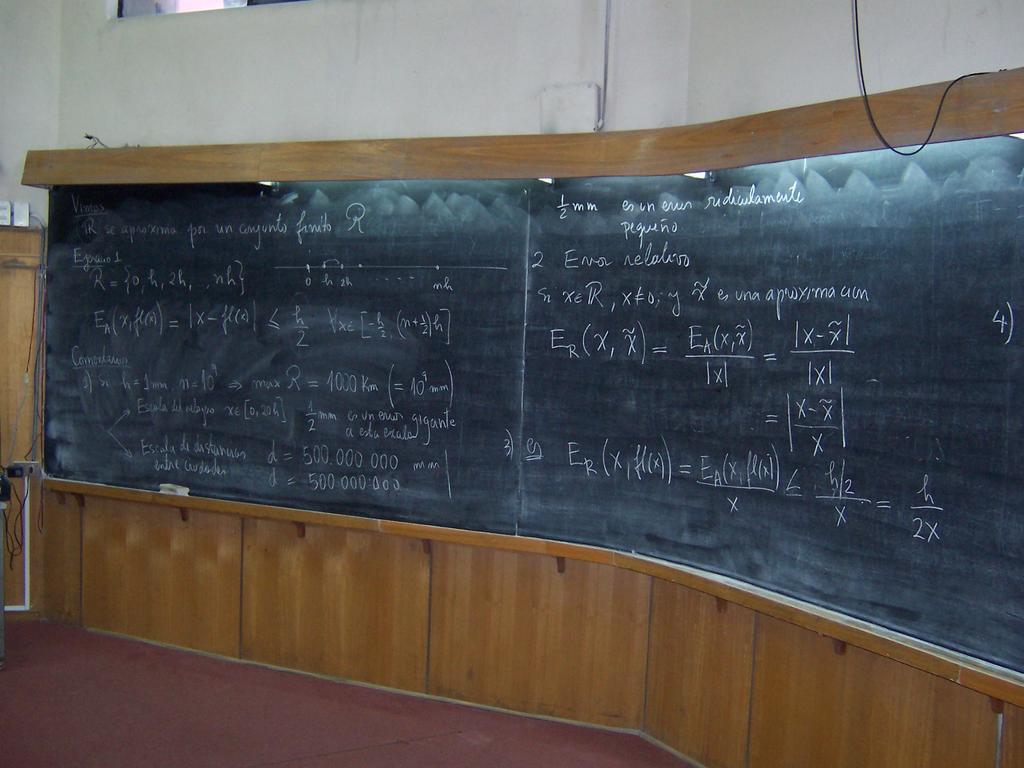 Vimos
ℝ se aproxima por un conjunto finito R
Ejercicio 1
R = {0, h, 2h, ..., nh}
0 h 2h ..... nh
E_A(x, fl(x)) = |x - fl(x)| ≤ h/2 ∀x∈[-h/2, (n+1/2)h]
Comentarios
1) si h = 1mm, n = 10^9 ⇒ max R = 1000 Km (= 10^9 mm)
Escala del relojero x∈[0, 20h] 1/2 mm es un error gigante
a esta escala
Escala de distancias d = 500.000 000 mm
entre ciudades d = 500 000.000
1/2 mm es un error ridiculamente
pequeño
2 Error relativo
Si x∈ℝ, x≠0, y x̃ es una aproximacion
E_R(x, x̃) = E_A(x, x̃)/|x| = |x-x̃|/|x|
= |(x-x̃)/x|
3) ej E_R(x, fl(x)) = E_A(x, fl(x))/x ≤ (h/2)/x = h/2x
4)